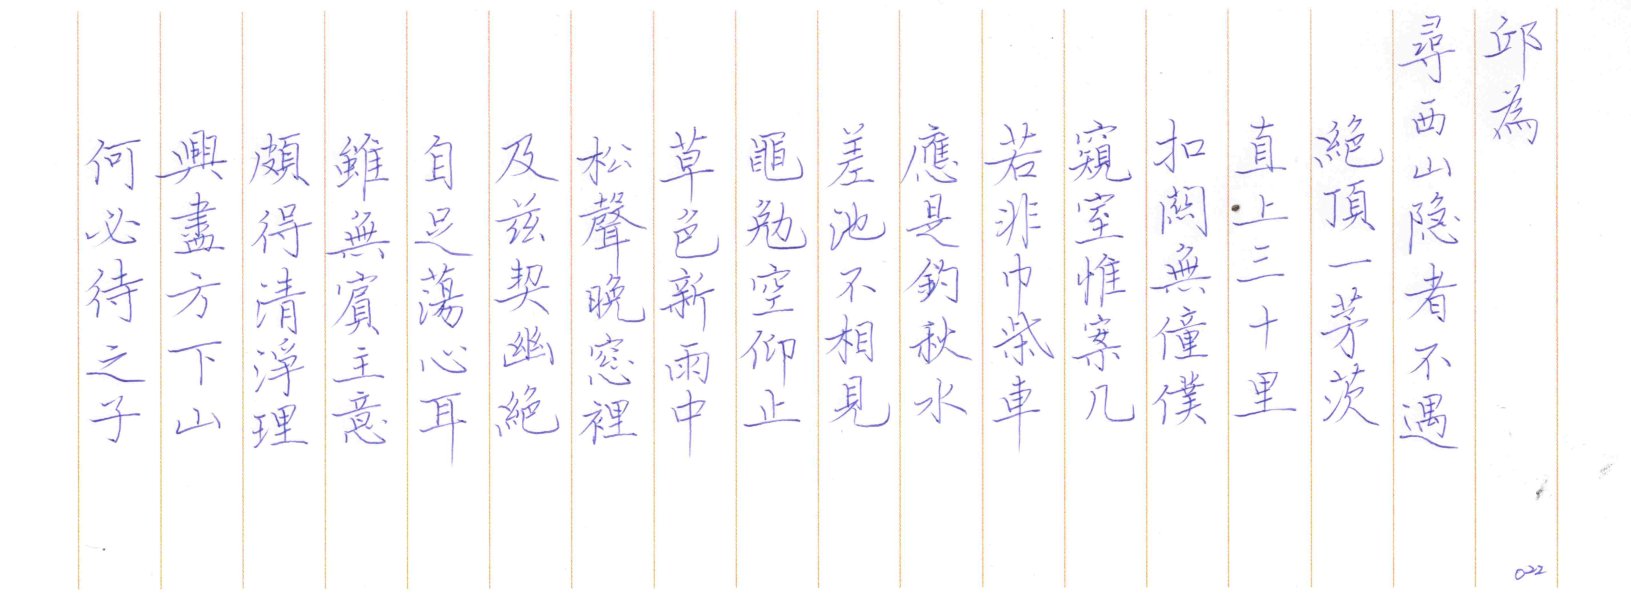 邱為
尋西山隐者不遇
絕頂一茅茨
直上三十里
扣關無僮僕
窺室惟案几
若非巾柴車
應是釣秋水
差池不相見
黽勉空仰止
草色新雨中
松聲晚窓裡
及茲契幽絕
自足蕩心耳
雖無賓主意
頗得清淨理
興盡方下山
何必待之子
022